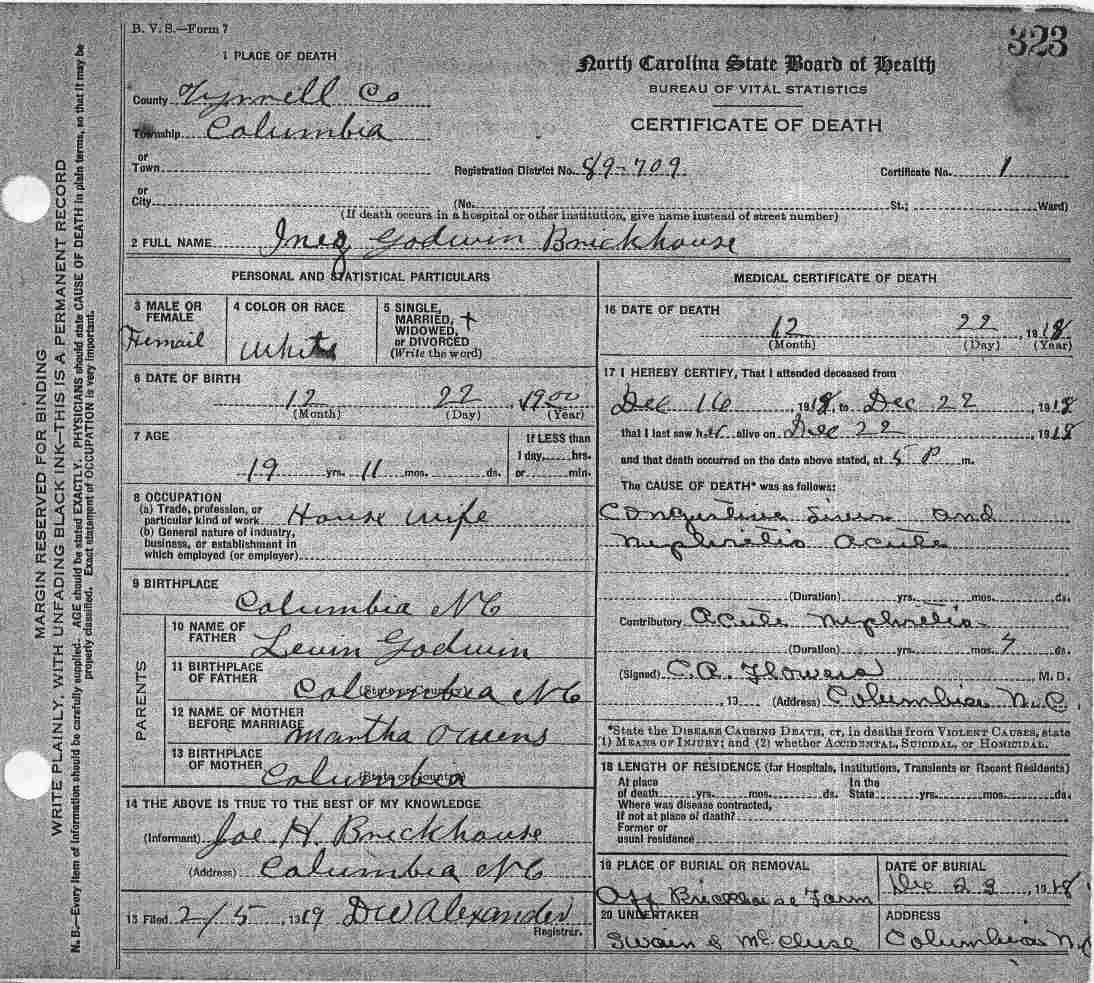 B. V. S.—Form 7
323
1 PLACE OF DEATH
North Carolina State Board of Health
BUREAU OF VITAL STATISTICS
CERTIFICATE OF DEATH
County Tyrrell Co
Township Columbia
or
Town
Registration District No. 89-709
Certificate No. 1
or
City
(No. St.; Ward)
(If death occurs in a hospital or other institution, give name instead of street number)
2 FULL NAME Inez Godwin Brickhouse
PERSONAL AND STATISTICAL PARTICULARS
3 MALE OR FEMALE
Femail
4 COLOR OR RACE
White
5 SINGLE,
MARRIED,
WIDOWED,
or DIVORCED
(Write the word)
6 DATE OF BIRTH
12 22 1900
(Month) (Day) (Year)
7 AGE
If LESS than
1 day, hrs.
or min.
19 yrs. 11 mos. ds.
8 OCCUPATION
(a) Trade, profession, or
particular kind of work House wife
(b) General nature of industry,
business, or establishment in
which employed (or employer)
9 BIRTHPLACE
Columbia NC
PARENTS
10 NAME OF
FATHER Levin Godwin
11 BIRTHPLACE
OF FATHER Columbia NC
12 NAME OF MOTHER
BEFORE MARRIAGE Martha Owens
13 BIRTHPLACE
OF MOTHER Columbia
(State or Country)
14 THE ABOVE IS TRUE TO THE BEST OF MY KNOWLEDGE
(Informant) Joe H. Brickhouse
(Address) Columbia NC
15 Filed 2/5 1919 DW Alexander
Registrar.
MEDICAL CERTIFICATE OF DEATH
16 DATE OF DEATH
12 22 1918
(Month) (Day) (Year)
17 I HEREBY CERTIFY, That I attended deceased from
Dec 16 1918, to Dec 22 1918
that I last saw her alive on Dec 22 1918
and that death occurred on the date above stated, at 5 P m.
The CAUSE OF DEATH* was as follows:
and
Nephritis acute
(Duration) yrs. mos. ds.
Contributory Acute Nephritis
(Duration) yrs. mos. 7 ds.
(Signed) Flowers M. D.
, 19 (Address) Columbia N.C.
*State the DISEASE CAUSING DEATH, or, in deaths from VIOLENT CAUSES, state
(1) MEANS OF INJURY; and (2) whether ACCIDENTAL, SUICIDAL, or HOMICIDAL.
18 LENGTH OF RESIDENCE (for Hospitals, Institutions, Transients or Recent Residents)
At place
of death yrs. mos. ds.
In the
State yrs. mos. ds.
Where was disease contracted,
If not at place of death?
Former or
usual residence
19 PLACE OF BURIAL OR REMOVAL
Off Brickhouse Farm
DATE OF BURIAL
Dec 23, 1918
20 UNDERTAKER
Swain &
ADDRESS
Columbia N.C
MARGIN RESERVED FOR BINDING
WRITE PLAINLY, WITH UNFADING BLACK INK—THIS IS A PERMANENT RECORD
N. B.—Every item of information should be carefully supplied. AGE should be stated EXACTLY. PHYSICIANS should state CAUSE OF DEATH in plain terms, so that it may be
properly classified. Exact statement of OCCUPATION is very important.